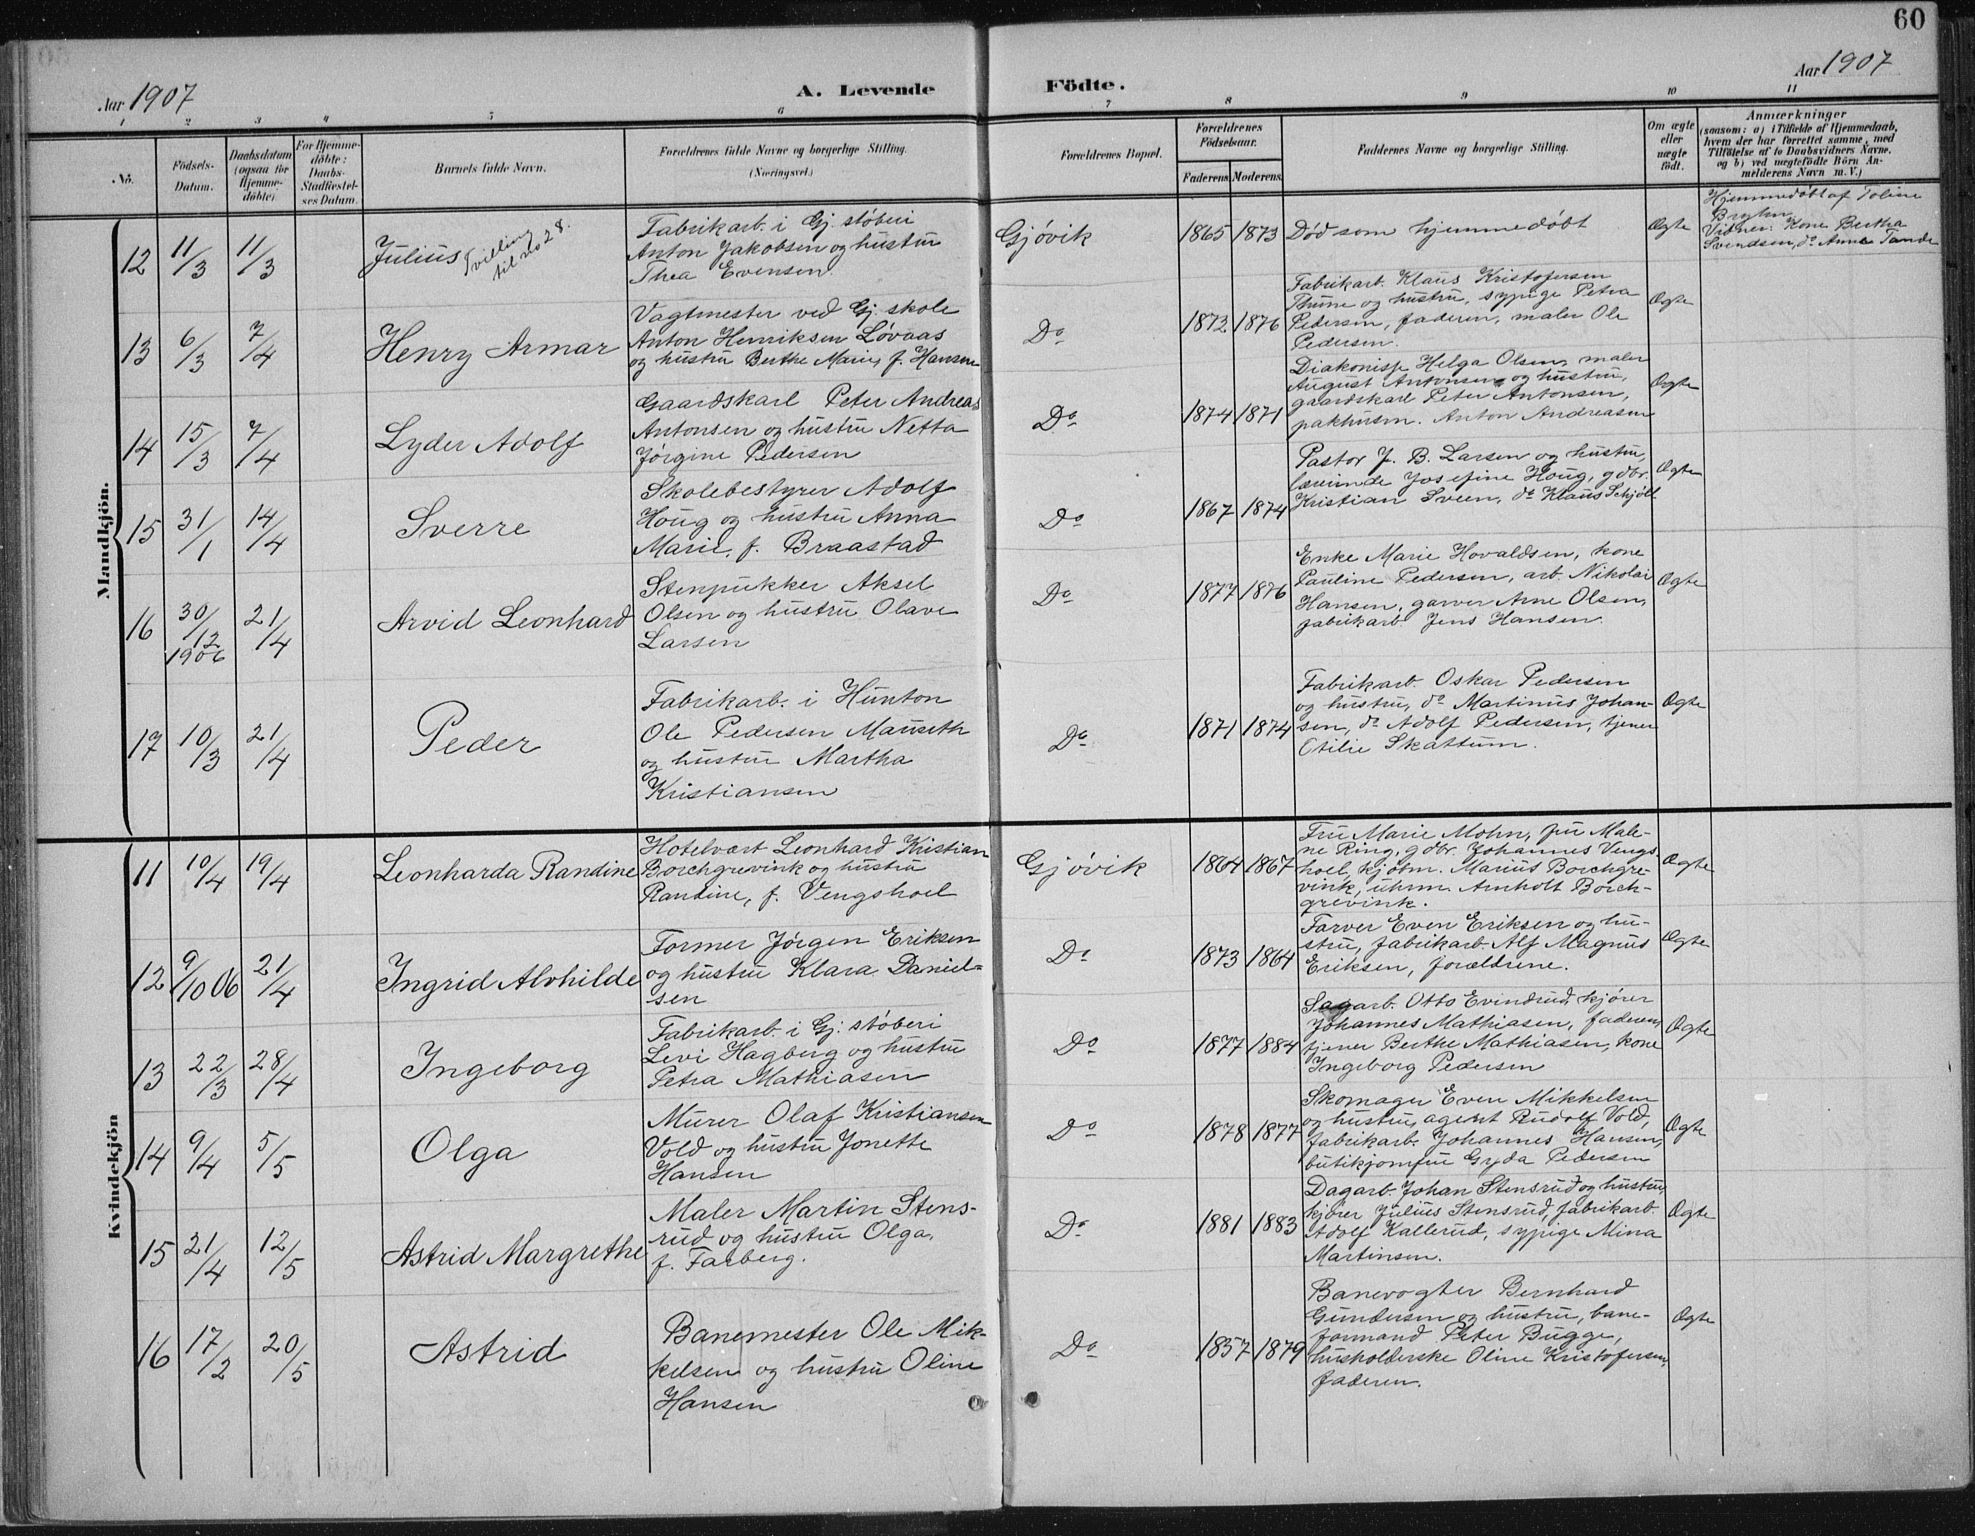 60
Aar 1907
A. Levende
Födte.
Aar 1907
1 2 3 4 5 6 7 8 9 10 11
No.
Födsels-
Datum.
Daabsdatum
(ogsaa for
Hjemme-
döbte)
For Hjemme-
döbte:
Daabs-
Stadfæstel-
ses Datum.
Barnets fulde Navn.
Forældrenes fulde Navne og borgerlige Stilling.
(Næringsvei.)
Forældrenes Bopæl.
Forældrenes
Födselsaar.
Faderens. Moderens.
Faddernes Navne og borgerlige Stilling.
Om ægte
eller
uægte
födt.
Anmærkninger
(saasom: a) i Tilfælde af Hjemmedaab,
hvem der har forrettet samme, med
Tilföielse af to Daabsvidners Navne,
og b) ved uægtefödte Börn An-
melderens Navn m. V.)
Mandkjön.
12 11/3 11/3 Julius Tvilling
til no 28.
Fabrikarb. i Gj. støberi
Anton Jakobsen og hustru
Thea Evensen
Gjøvik 1865 1873 Død som hjemmedøbt Ægte
Hjemmedøbt af Toline
Bryhn
Vidner: Kone Bertha
Svendsen, do Anne Tande
13 6/3 7/4 Henry Armar
Vagtmester ved Gj. skole
Anton Henriksen Løvaas
og hustru Berthe Marie, f. Hansen
Do 1872 1876
Fabrikarb. Klaus Kristofersen
Thune og hustru, sypige Petra
Pedersen, faderen, maler Ole
Pedersen.
Ægte
14 15/3 7/4 Lyder Adolf
Gaardskarl Peter Andreas
Antonsen og hustru Netta
Jørgine Pedersen
Do 1874 1871
Diakonisse Helga Olsen, maler
August Antonsen og hustru,
gaardskarl Peter Antonsen,
pakhusm. Anton Andreasen
Ægte
15 31/1 14/4 Sverre
Skolebestyrer Adolf
Houg og hustru Anna
Marie, f. Braastad
Do 1867 1874
Pastor J. B. Larsen og hustru,
lærerinde Josefine Houg, gdbr.
Kristian Sveen, do Klaus Schjøll
Ægte
16 30/12 1906 21/4 Arvid Leonhard
Stenpukker Aksel
Olsen og hustru Olave
Larsen
Do 1877 1876
Enke Marie Hovaldsen, kone
Pauline Pedersen, arb. Nikolai
Hansen, garver Arne Olsen,
fabrikarb. Jens Hansen.
Ægte
17 10/3 21/4 Peder
Fabrikarb. i Hunton
Ole Pedersen Mauseth
og hustru Martha
Kristiansen
Do 1871 1874
Fabrikarb. Oskar Pedersen
og hustru, do Martinus Johan-
sen, do Adolf Pedersen, tjener
Otilie Skattum.
Ægte
Kvindekjön
11 10/4 19/4 Leonharda Randine
Hotelvært Leonhard Kristian
Borchgrevink og hustru
Randine, f. Vengshoel
Gjøvik 1864 1867
Fru Marie Mohn, fru Male-
ne Ring, gdbr. Johannes Vengs-
hoel, kjøbm. Marius Borchgre-
vink, uhrm. Arnholt Borch-
grevink.
Ægte
12 9/10 06 21/4 Ingrid Alvhilde
Former Jørgen Eriksen
og hustru Klara Daniel-
sen
Do 1873 1864
Farver Even Eriksen og hu-
stru, fabrikarb. Alf Magnus
Eriksen, forældrene.
Ægte
13 22/3 28/4 Ingeborg
Fabrikarb. i Gj. støberi
Levi Hagberg og hustru
Petra Mathiasen
Do 1877 1884
Sagarb. Otto Evindrud, kjører
Johannes Mathiasen, faderen,
tjener Berthe Mathiasen, kone
Ingeborg Pedersen
Ægte
14 9/4 5/5 Olga
Murer Olaf Kristiansen
Vold og hustru Jonette
Hansen
Do 1878 1877
Skomager Even Mikkelsen
og hustru, agent Rudolf Vold,
fabrikarb. Johannes Hansen,
butikjomfru Gyda Pedersen
Ægte
15 21/4 12/5 Astrid Margrethe
Maler Martin Stens-
rud og hustru Olga,
f. Farberg.
Do 1881 1883
Dagarb. Johan Stensrud og hustru,
kjører Julius Stensrud, fabrikarb.
Adolf Kallerud, sypige Mina
Martinsen.
Ægte
16 17/2 20/5 Astrid
Banemester Ole Mik-
kelsen og hustru Oline
Hansen
Do 1857 1879
Banevogter Bernhard
Gundersen og hustru, bane-
formand Peter Bugge,
husholderske Oline Kristofersen,
faderen.
Ægte